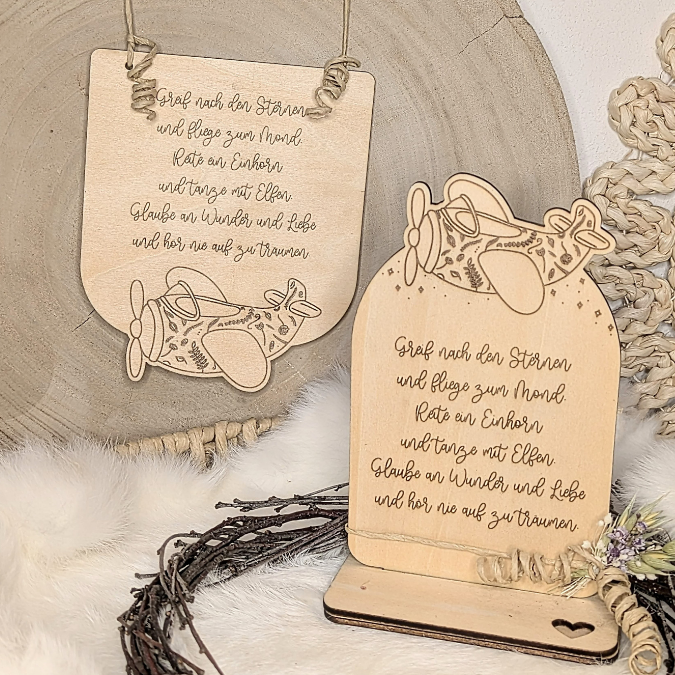 Greif nach den Sternen
und fliege zum Mond.
Reite ein Einhorn
und tanze mit Elfen.
Glaube an Wunder und Liebe
und hör nie auf zu träumen
Greif nach den Sternen
und fliege zum Mond.
Reite ein Einhorn
und tanze mit Elfen.
Glaube an Wunder und Liebe
und hör nie auf zu träumen.